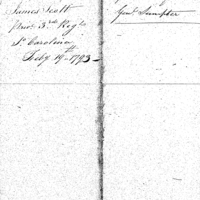 James Scott
Priv: 3rd Regt
So Carolina
Feby 19th 1793
Genl Sumpter